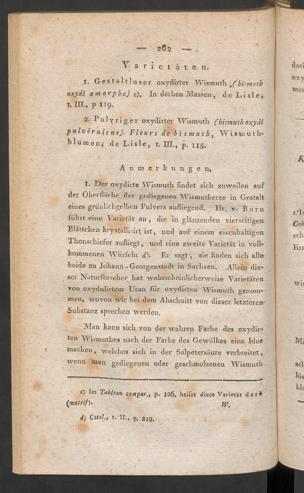 — 262 —
Varietäten.
1. Gestaltloser oxydirter Wismuth (bismuth
oxydé amorphe) c). In derben Massen, de Lisle,
t. III., p 119.
2. Pulvriger oxydirter Wismuth (bismuth oxydé
pulvérulent). Fleurs de bismuth, Wismuth-
blumen; de Lisle, t. III., p. 118.
Anmerkungen.
1. Der oxydirte Wismuth findet sich zuweilen auf
der Oberfläche der gediegenen Wismutherze in Gestalt
eines grünlichgelben Pulvers aufliegend. Hr. v. Born
führt eine Varietät an, die in glänzenden vierseitigen
Blättchen krystallisirt ist, und auf einem eisenhaltigen
Thonschiefer aufliegt, und eine zweite Varietät in voll-
kommenen Würfeln d). Er sagt, sie finden sich alle
beide zu Johann-Georgenstadt in Sachsen. Allein die-
ser Naturforscher hat wahrscheinlicherweise Varietäten
von oxydulirtem Uran für oxydirten Wismuth genom-
men, wovon wir bei dem Abschnitt von dieser letzteren
Substanz sprechen werden.
Man kann sich von der wahren Farbe des oxydir-
ten Wismuthes nach der Farbe des Gewölkes eine Idee
machen, welches sich in der Salpetersäure verbreitet,
wenn man gediegenen oder geschmolzenen Wismuth
c) Im Tableau compar., p. 106. heisst diese Varietät derb
(massif). W.
d) Catal., t. II., p. 219.